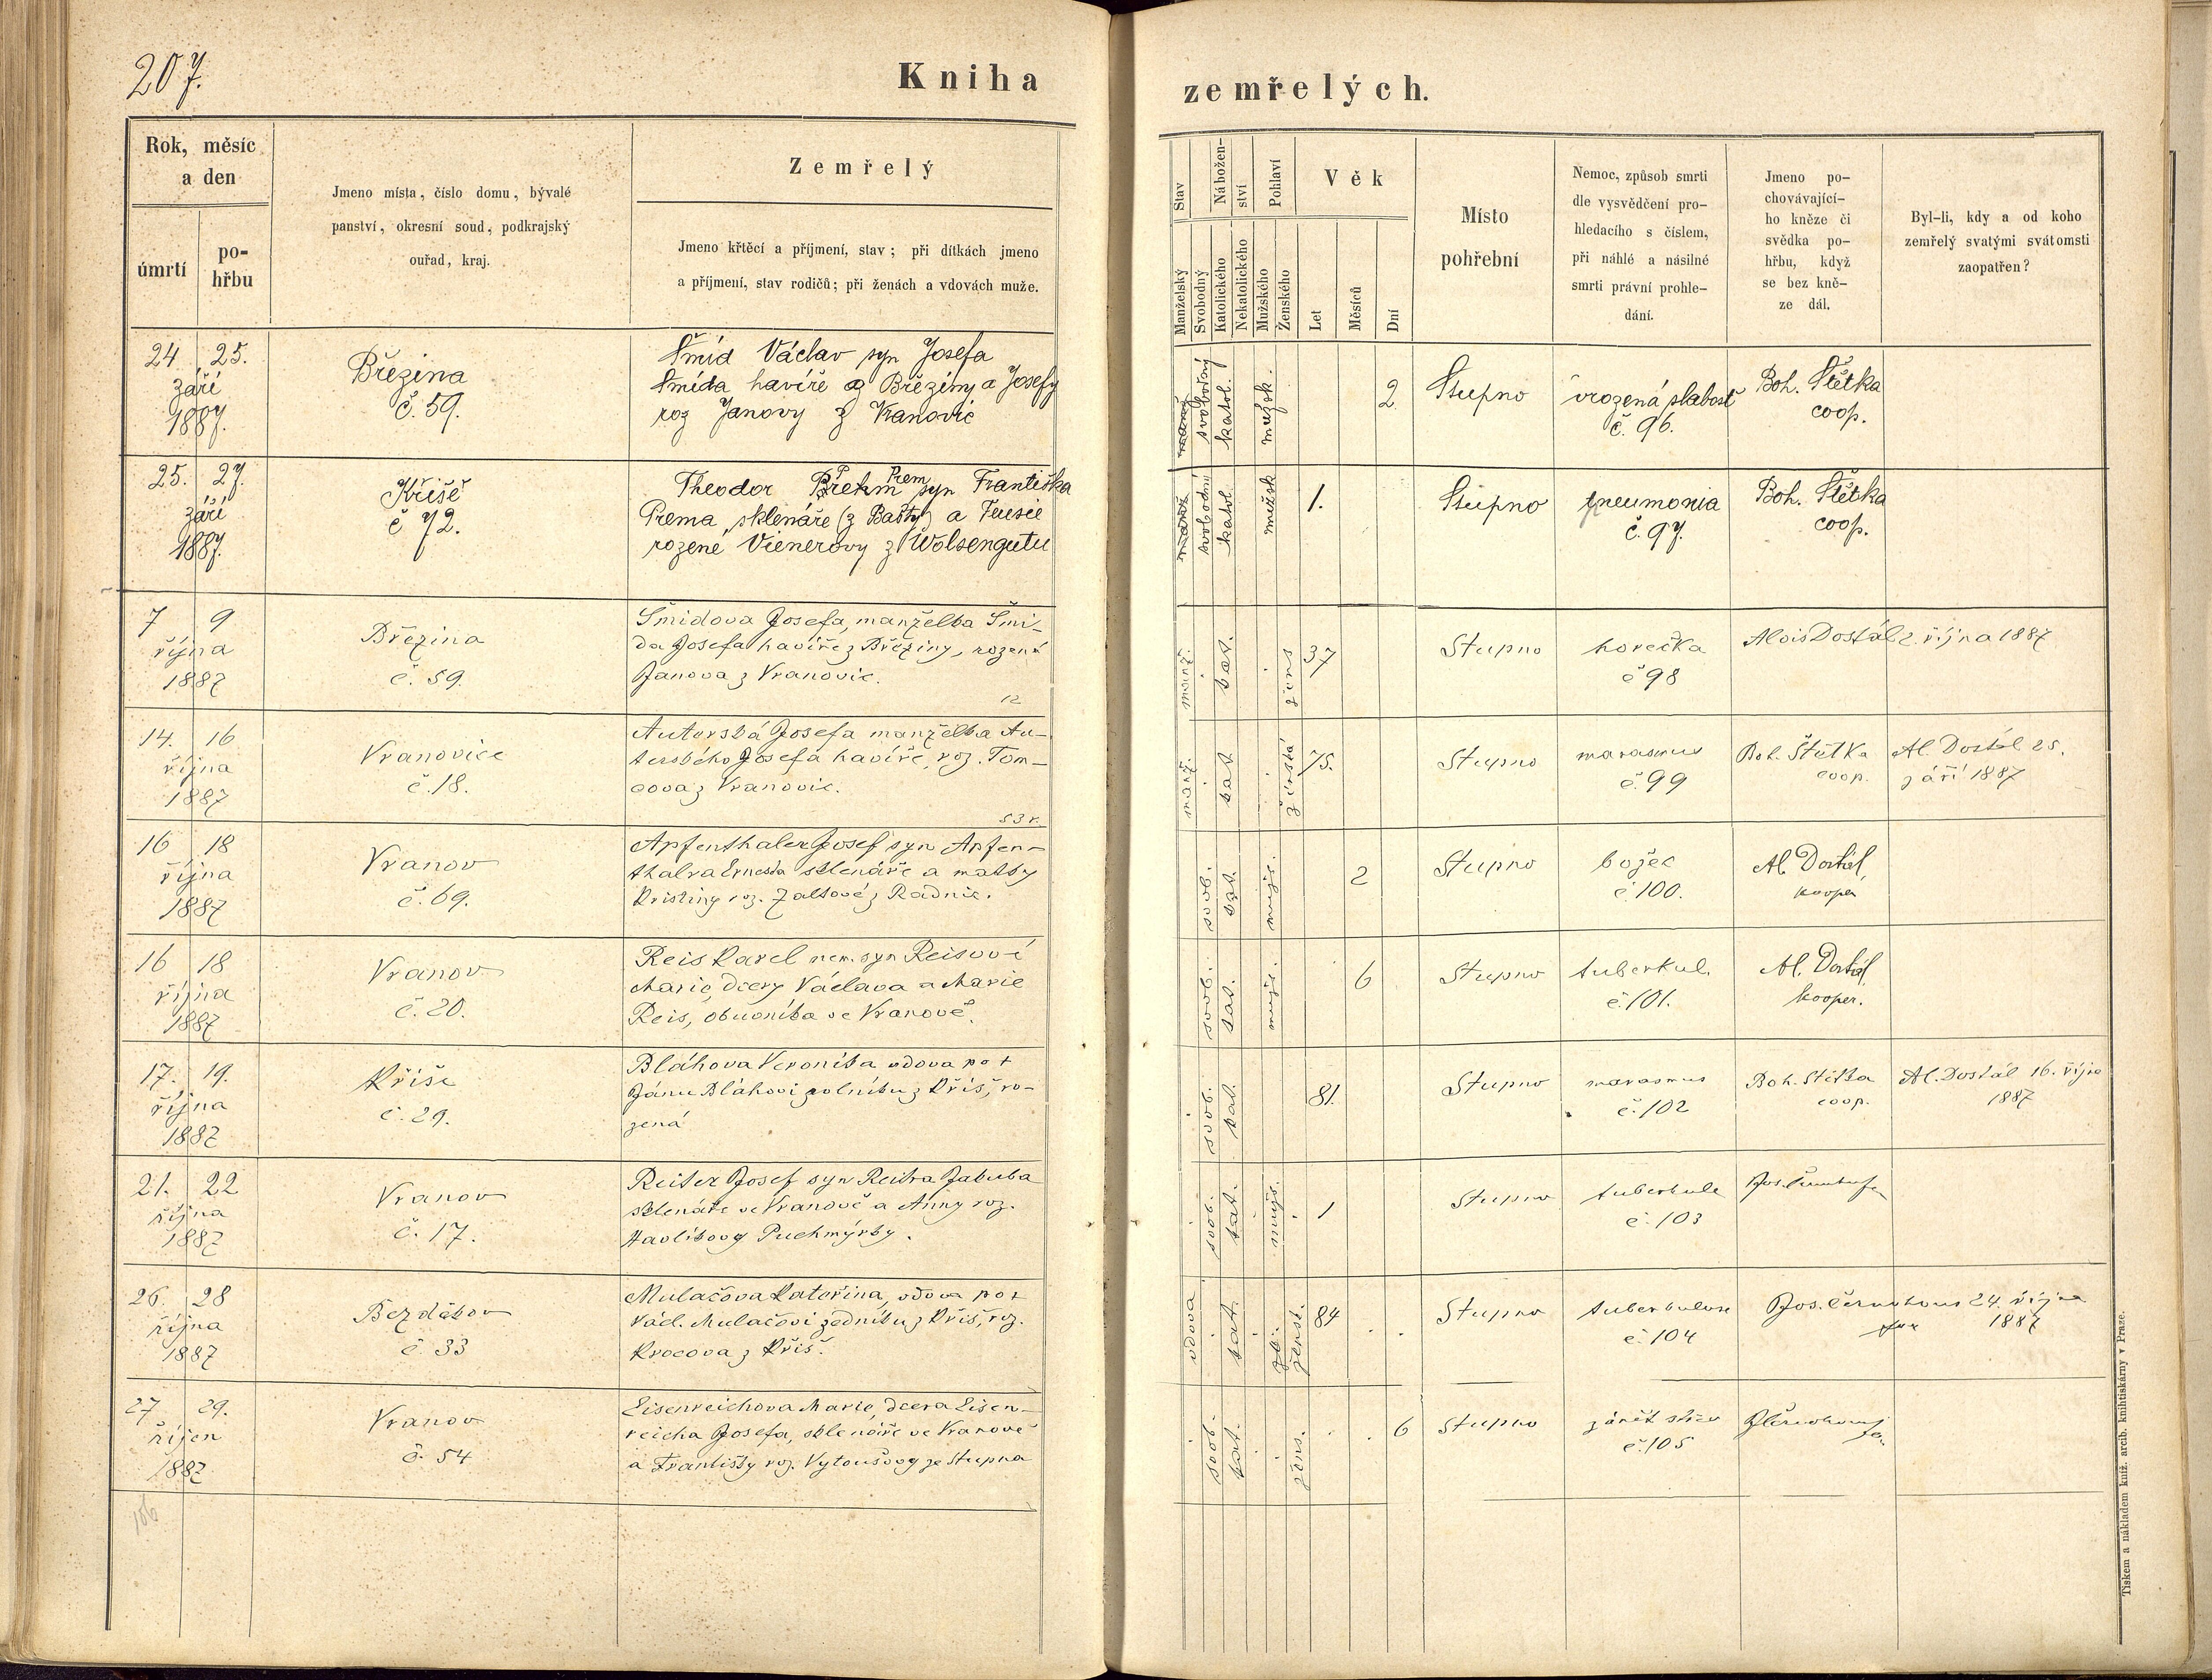 207.
Kniha
zemřelých.
Rok, měsíc
a den
úmrtí
po-
hřbu
Jmeno místa, číslo domu, bývalé
panství, okresní soud, podkrajský
ouřad, kraj.
Zemřelý
Jmeno křtěcí a příjmení, stav; při dítkách jmeno
a příjmení, stav rodičů; při ženách a vdovách muže.
Stav
Manželský
Svobodný
Nábožen-
ství
Katolického
Nekatolického
Pohlaví
Mužského
Ženského
Věk
Let
Měsíců
Dní
Místo
pohřební
Nemoc, způsob smrti
dle vysvědčení pro-
hledacího s číslem,
při náhlé a násilné
smrti právní prohle-
dání.
Jmeno po-
chovávající-
ho kněze či
svědka po-
hřbu, když
se bez kně-
ze dál.
Byl-li, kdy a od koho
zemřelý svatými svátomsti
zaopatřen?
24 25.
září
1887.
Březina
č. 59.
Šmíd Václav syn Josefa
Šmída havíře z Březiny a Josefy
roz Janovy z Vranovic
svobodný
katol.
mužsk.
2
Stupno
vrozená slabosť
č. 96.
Boh. Štětka
coop.
25. 27.
září
1887.
Kříše
č 72.
Theodor Prem syn Františka
Prema, sklenáře (z Bašty) a Teresie
rozené Vienerovy z Wolsengutu
svobodní
katol.
mužsk
1.
Stupno
pneumonia
č. 97.
Boh. Štětka
coop.
7 9
října
1887
Březina
č. 59.
Šmidova Josefa, manželka Šmi-
da Josefa havíře z Březiny, rozená
Janova z Vranovic.
12
manž.
kat.
žens
37
Stupno
horečka
č 98
Alois Dostál 2. října 1887
14. 16
října
1887
Vranovice
č. 18.
Auterská Josefa manželka Au-
terského Josefa havíře, roz. Tom-
cova z Vranovic.
53 r.
manž.
kat
ženská
75.
Stupno
marasmus
č. 99
Boh. Štětka
coop.
Al. Dostál 25.
září 1887
16 18
října
1887
Vranov
č. 69.
Apfenthaler Josef syn Apfen-
thalra Ernesta sklenáře a matky
Kristiny roz. Zaltové z Radnic.
svob.
kat.
mužs.
2
Stupno
božec
č 100.
Al. Dostál,
kooper
16 18
října
1887
Vranov
č. 20.
Reis Karel nem. syn Reisové
Marie, dcery Václava a Marie
Reis, obuvníka ve Vranově.
svob.
kat.
mužs.
6
Stupno
tuberkul.
č. 101.
Al. Dostál
kooper.
17. 19.
října
1887
Kříše
č. 29.
Bláhova Veronika vdova po †
Jánu Bláhovi rolníku z Kříš, ro-
zená
svob.
kat.
81.
Stupno
marasmus
č. 102
Boh. Štětka
coop.
Al. Dostál 16. října
1887
21. 22
října
1887
Vranov
č. 17.
Reiter Josef syn Reitra Jakuba
sklenáře ve Vranově a Anny roz.
Havlíkovy Puchmýrky.
svob.
kat.
mužs.
1
Stupno
tuberkule
č. 103
26. 28
října
1887
Bezděkov
č. 33
Mulačova Kateřina, vdova po †
Václ. Mulačovi zedníku z Kříš, roz.
Krocova z Kříš.
vdova
kat.
ženst.
84
Stupno
tuberkulose
č. 104
Jos. Černohous 24. října
1887
27 29.
říjen
1887
Vranov
č. 54
Eisenreichova Marie, dcera Eisen-
reicha Josefa, sklenáře ve Vranově
a Františky roz. Vytoušovy ze Stupna
svob.
kat.
žens.
6
Stupno
zánět střev
č. 105
106
Tiskem a nákladem kníž. arcib. knihtiskárny v Praze.